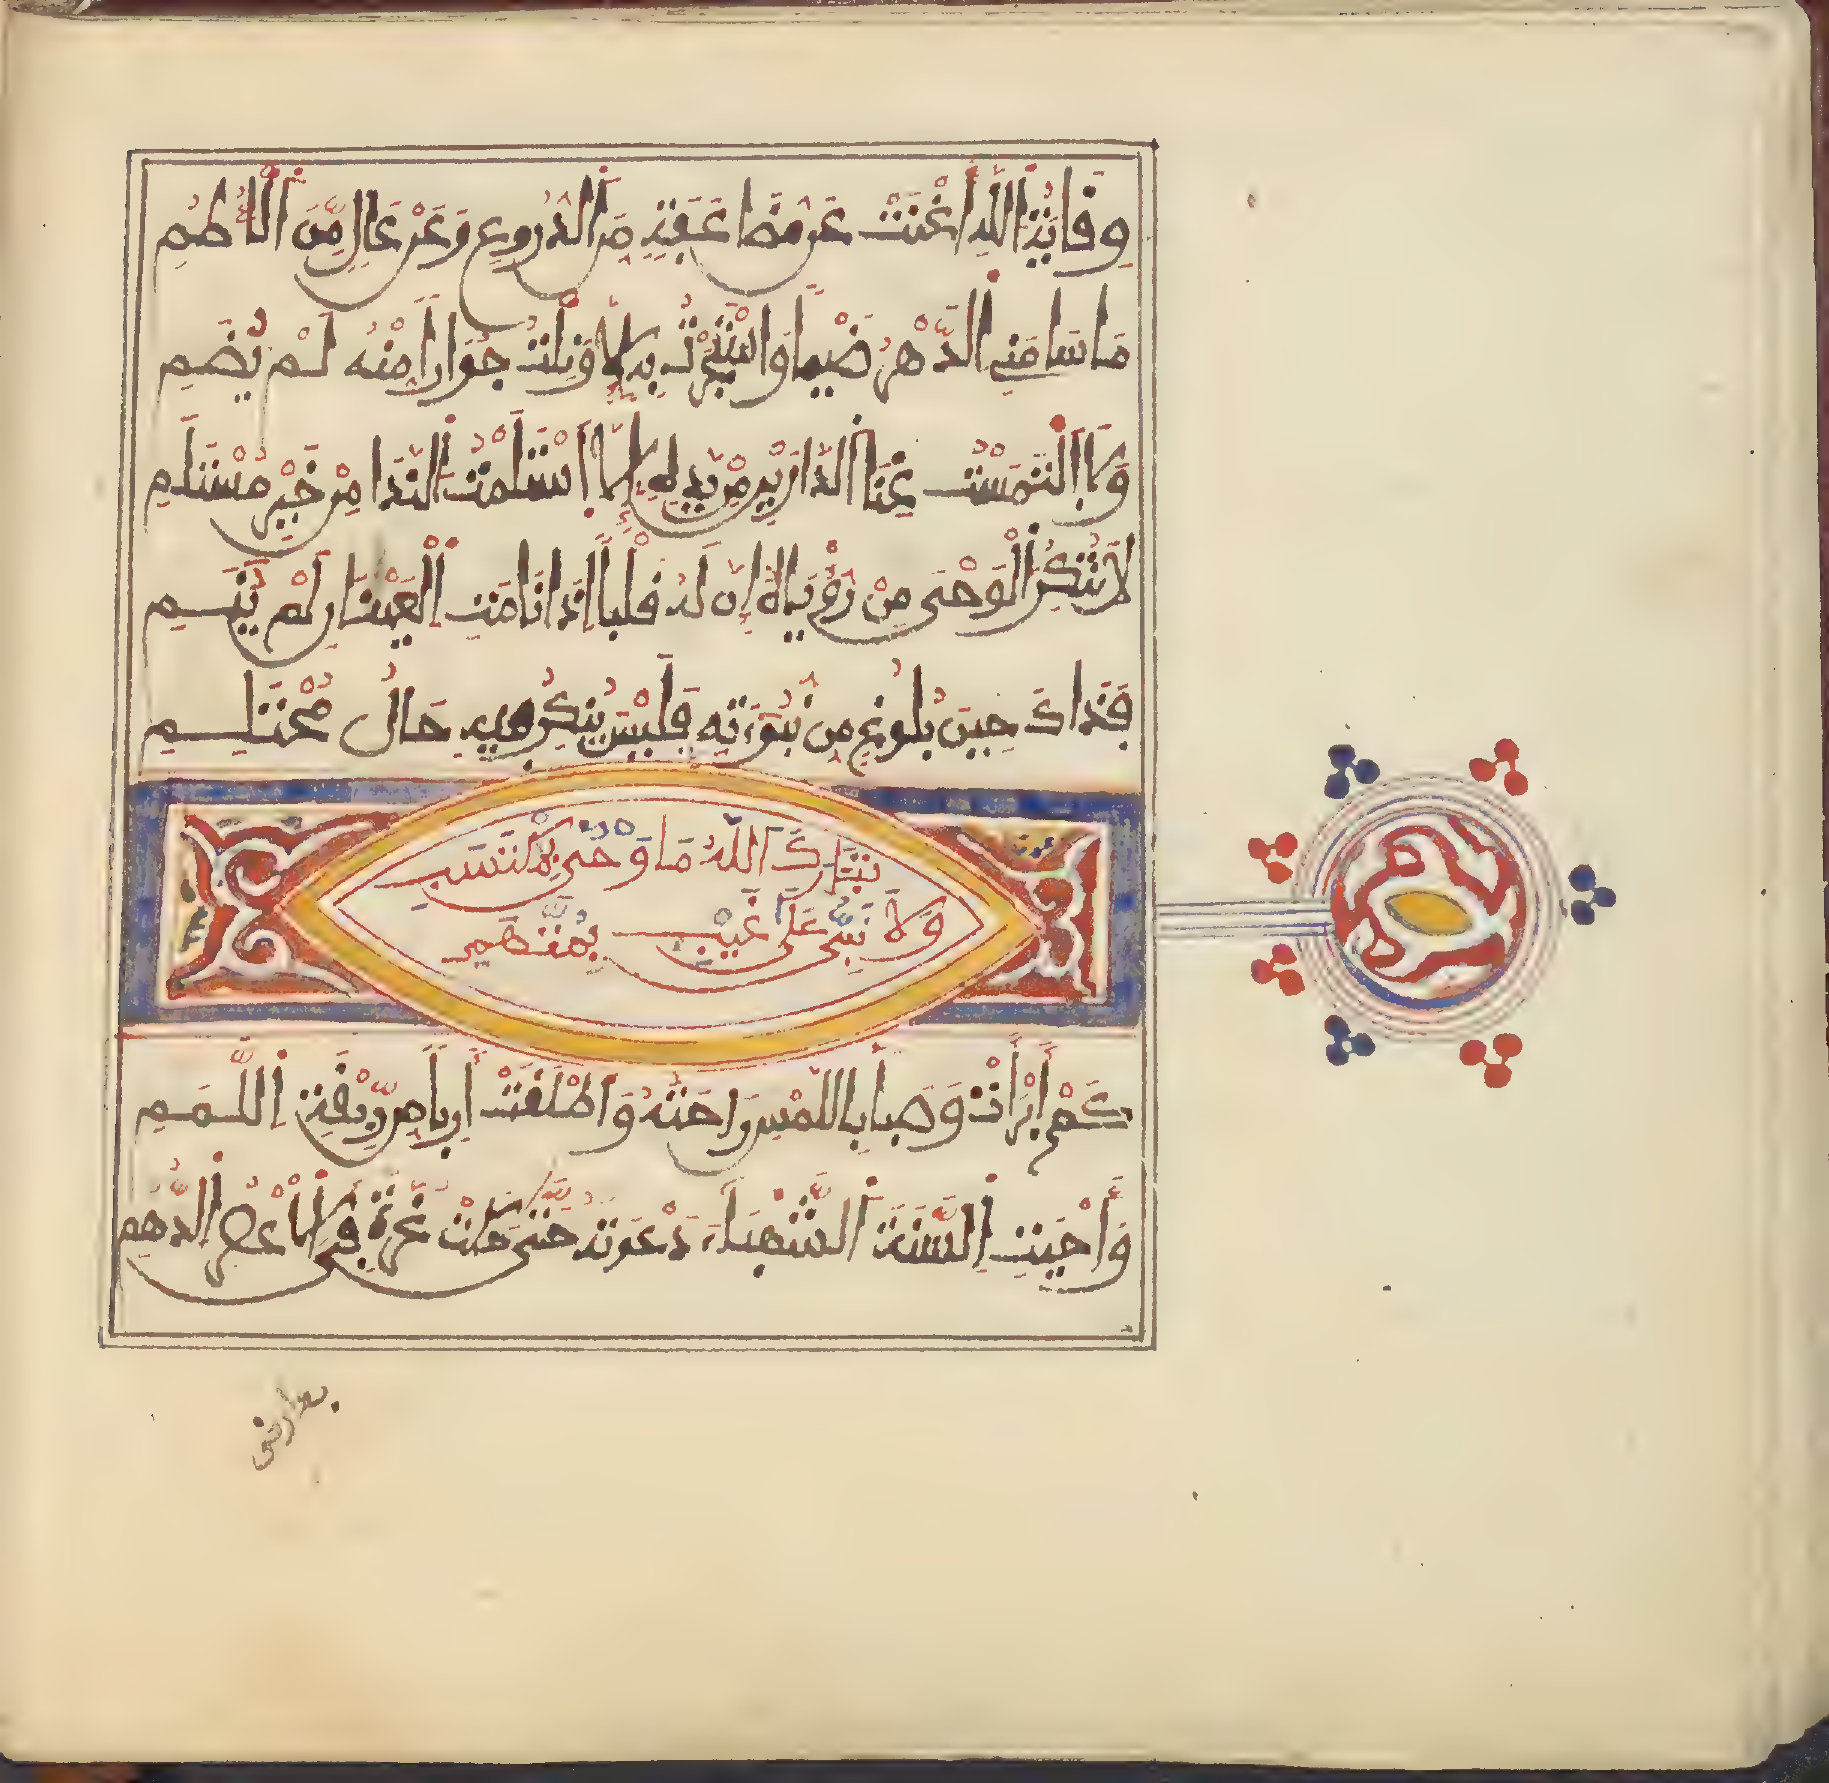 وِقَايَةُ اللَّهِ أَغْنَتْ عَن مُّضَاعَفَةٍ مِنَ الدُّرُوعِ وَعَنْ عَالٍ مِّنَ الْأُطُمِ
مَا سَامَنِي الدَّهْرُ ضَيْماً وَاسْتَجَرْتُ بِهِ إِلَّا وَنِلْتُ جِوَاراً مِنْهُ لَمْ يُضَمِ
وَلَا الْتَمَسْتُ غِنَا الدَّارَيْنِ مِنْ يَدِهِ إِلَّا اسْتَلَمْتُ النَّدَا مِنْ خَيْرِ مُسْتَلَمِ
لَا تُنْكِرُ الْوَحْيَ مِنْ رُؤْيَاهُ إِنَّ لَهُ قَلْباً إِذَا نَامَتِ الْعَيْنَانِ لَمْ يَنَمِ
فَذَاكَ حِينَ بُلُوغٍ مِن نُبُوَّتِهِ فَلَيْسَ يُنْكَرُ فِيهِ حَالُ مُحْتَلِمِ
تَبَارَكَ اللَّهُ مَا وَحْيٌ بِمُكْتَسَبٍ
وَلَا نَبِيٌّ عَلَى غَيْبٍ بِمُتَّهَمِ
كَمْ أَبْرَأَتْ وَصِباً بِاللَّمْسِ رَاحَتُهُ وَأَطْلَقَتْ أَرِباً مِن رِّبْقَةِ اللَّمَمِ
وَأَحْيَتِ السَّنَةَ الشَّهْبَاءَ دَعْوَتُهُ حَتَّى حَكَتْ غُرَّةً فِي الْأَعْصُرِ الدُّهُمِ
بعارض